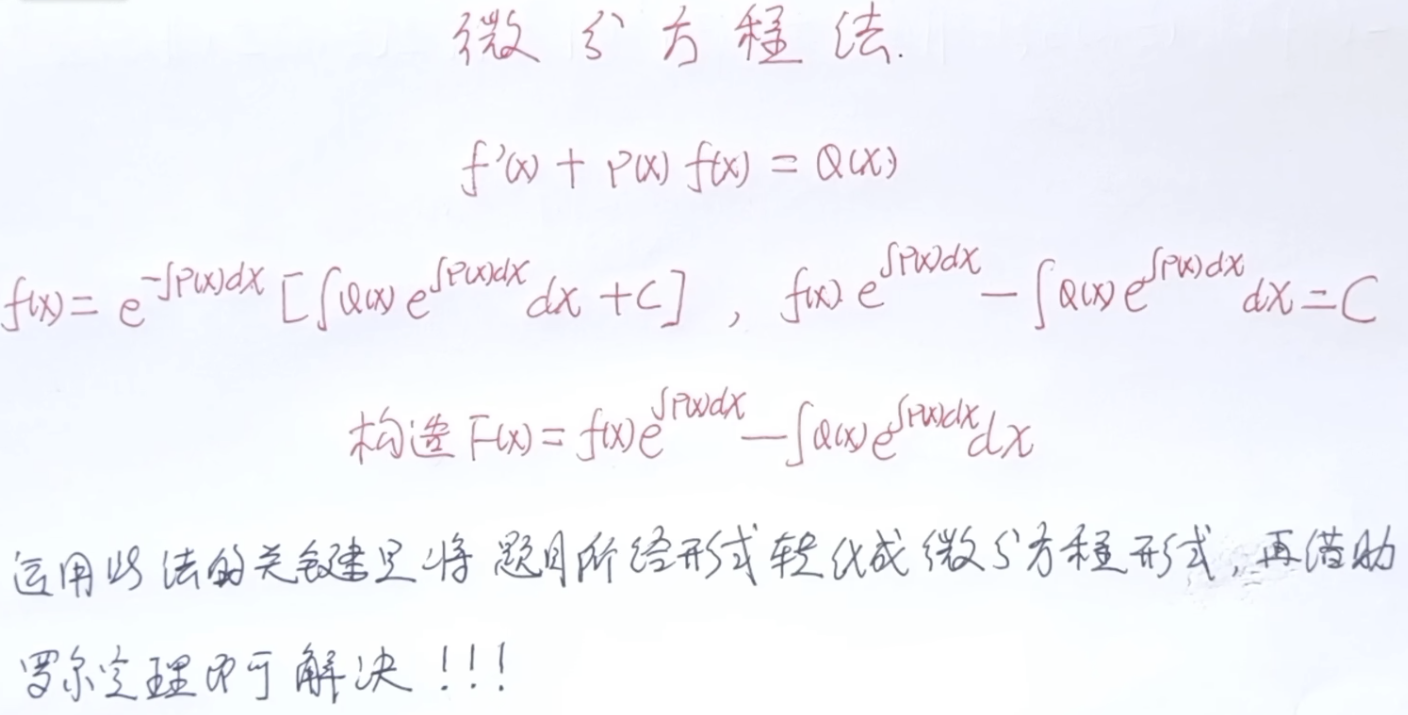 微分方程法.
f'(x) + P(x) f(x) = Q(x)
f(x) = e^{-∫P(x)dx} [∫Q(x) e^{∫P(x)dx} dx + C] , f(x) e^{∫P(x)dx} - ∫Q(x) e^{∫P(x)dx} dx = C
构造 F(x) = f(x) e^{∫P(x)dx} - ∫Q(x) e^{∫P(x)dx} dx
运用此法的关键是将题目所给形式转化成微分方程形式,再借助
罗尔定理即可解决!!!